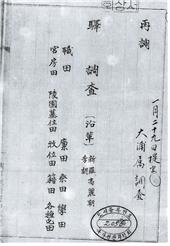 再調
一月二十九日提出
大浦属調査
驛 調査 [沿革] 新羅高麗朝
李朝
職田 廩田 祭田 學田
宮房田 陵園墓位田 牧位田 籍田 各種屯田